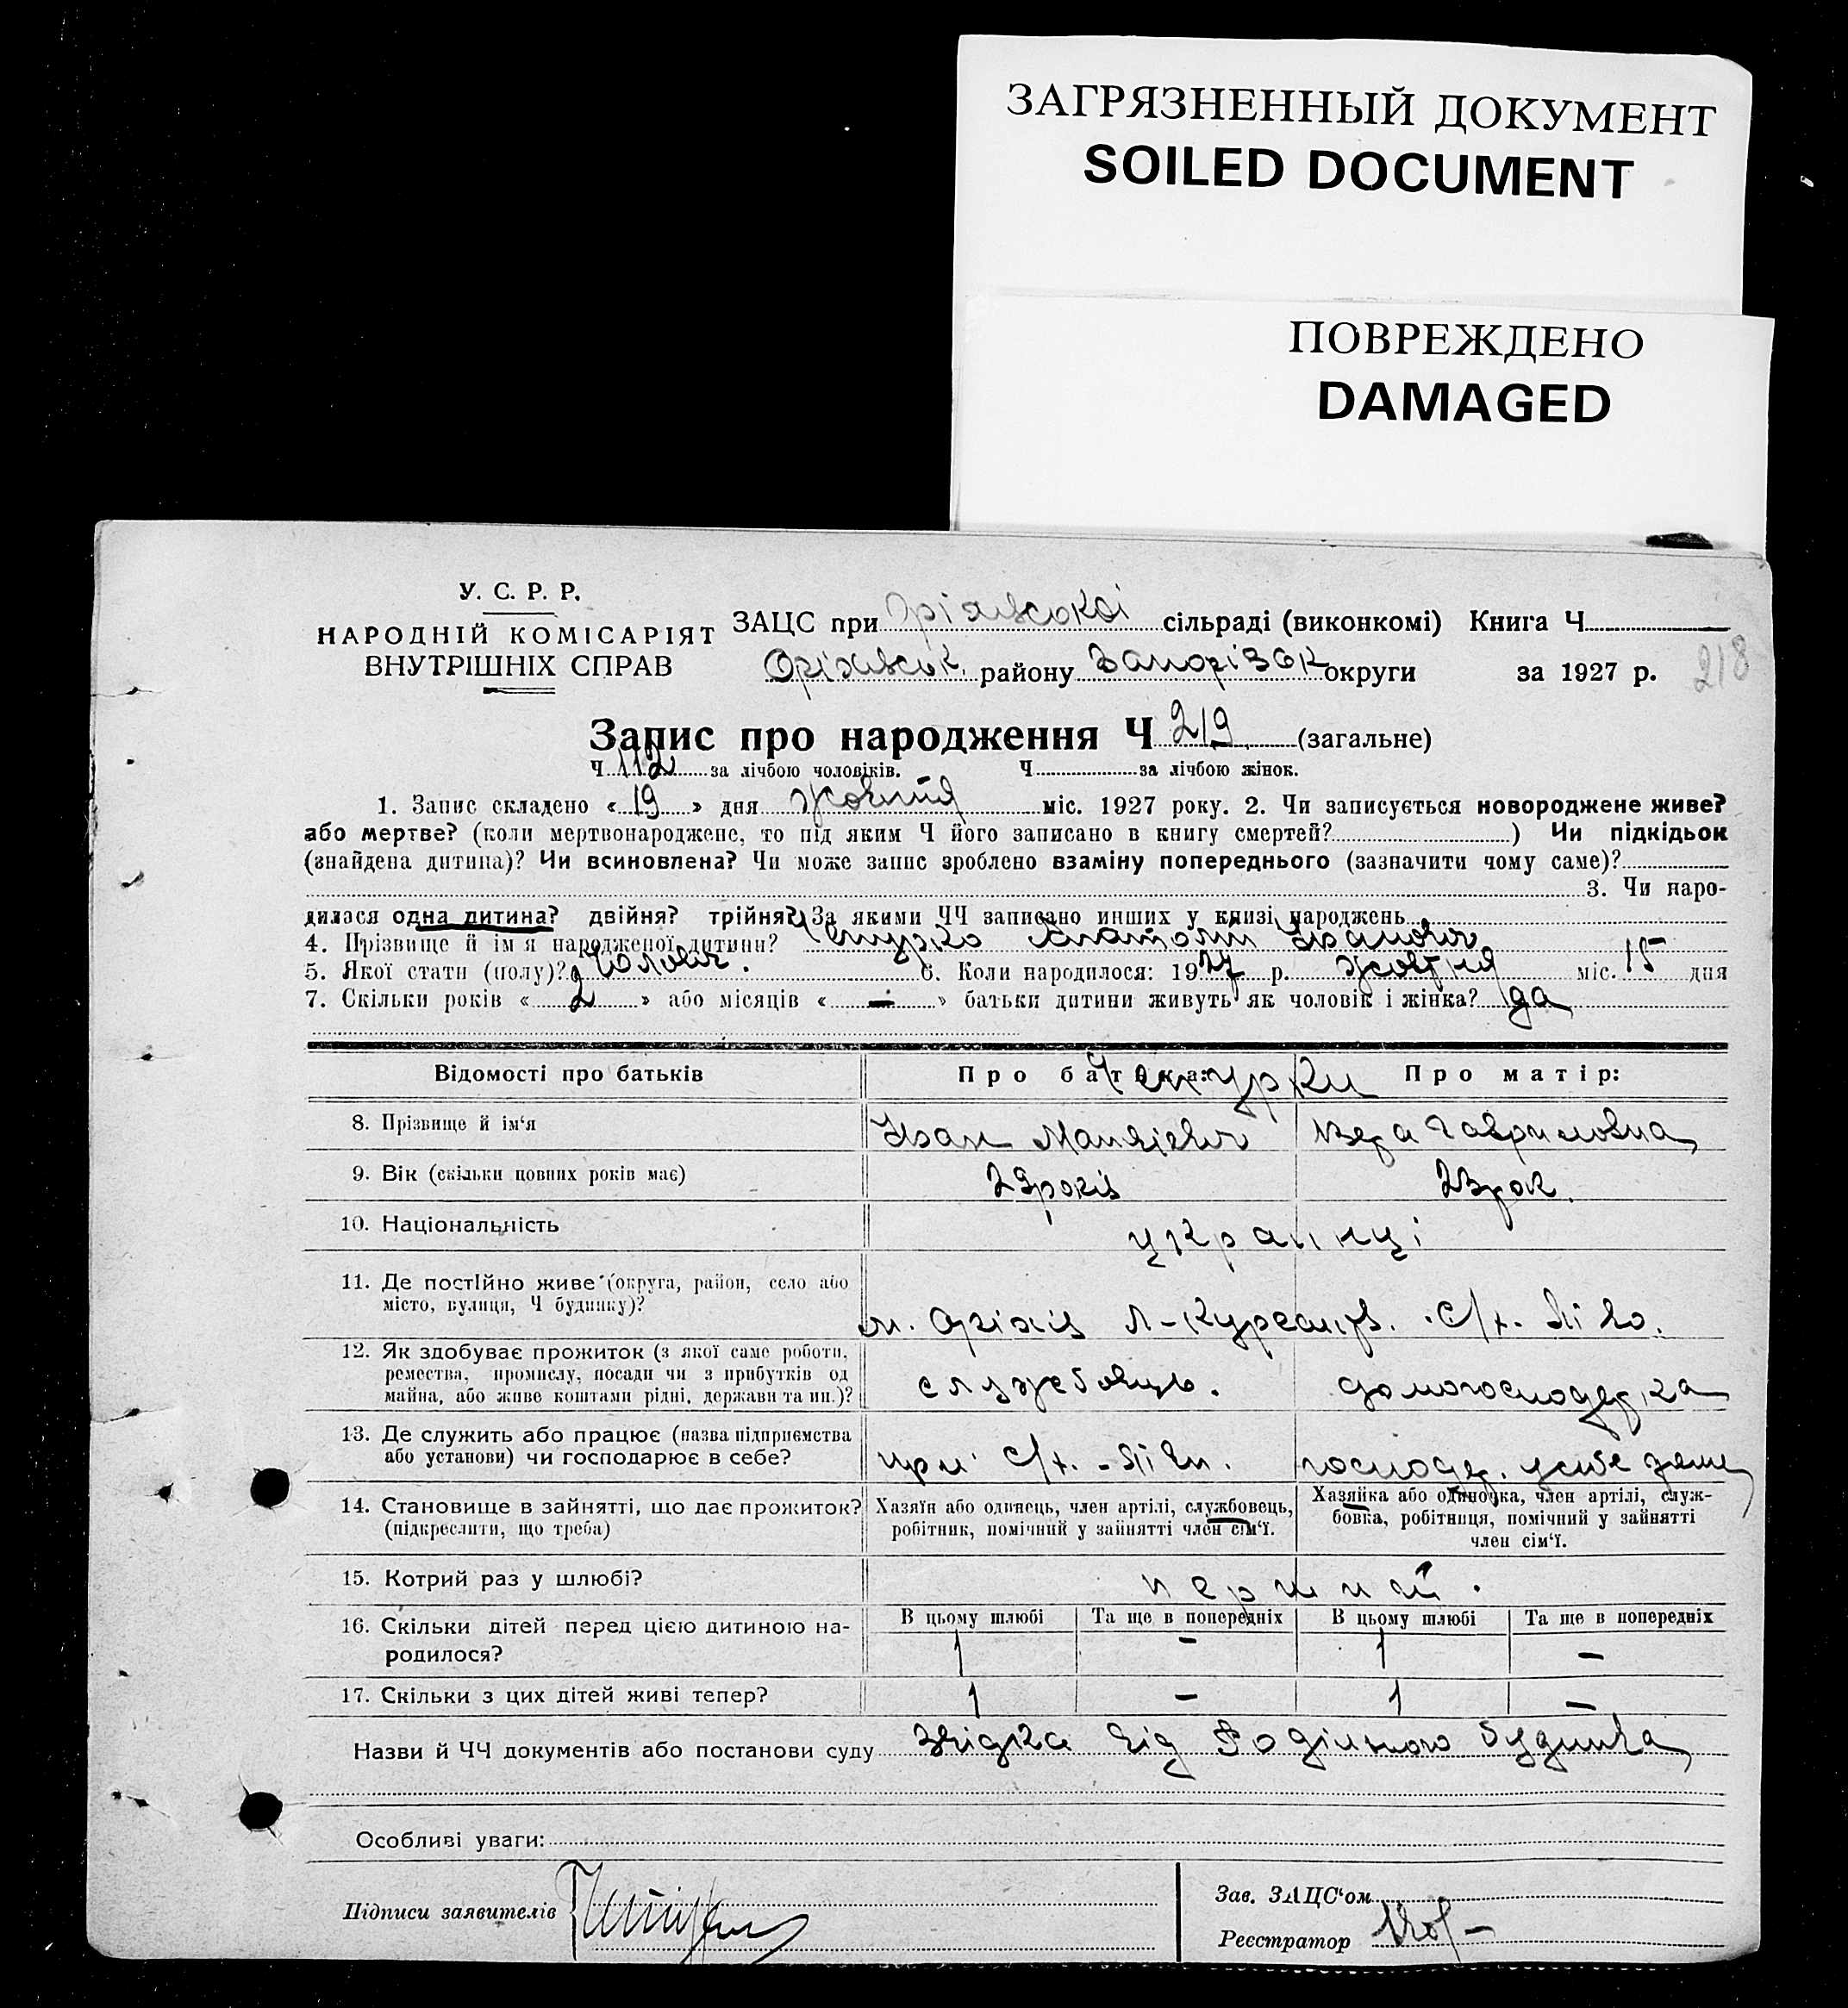 ЗАГРЯЗНЕННЫЙ ДОКУМЕНТ
SOILED DOCUMENT
ПОВРЕЖДЕНО
DAMAGED
У. С. Р. Р.
НАРОДНІЙ КОМІСАРІЯТ
ВНУТРІШНІХ СПРАВ
ЗАЦС при Оріхівської сільраді (виконкомі) Книга Ч
Оріхівськ. району Запорізьк округи за 1927 р.
218
Запис про народження Ч 219 (загальне)
Ч 112 за лічбою чоловіків. Ч за лічбою жінок.
1. Запис складено « 19 » дня жовтня міс. 1927 року. 2. Чи записується новороджене живе?
або мертве? (коли мертвонароджене, то під яким Ч його записано в книгу смертей? ) Чи підкідьок
(знайдена дитина)? Чи всиновлена? Чи може запис зроблено взаміну попереднього (зазначити чому саме)?
3. Чи наро-
дилася одна дитина? двійня? трійня? За якими ЧЧ записано инших у книзі народжень
4. Прізвище й ім'я народженої дитини? Анатолій Іванович
5. Якої стати (полу)? Чоловіч. 6. Коли народилося: 1927 р. жовтня міс. 15 дня
7. Скільки років « 2 » або місяців « — » батьки дитини живуть як чоловік і жінка? да
Відомості про батьків Про батька: Про матір:
8. Прізвище й ім'я Іван Вера Гавриловна
9. Вік (скільки повних років має) 29 років 23 рок.
10. Національність українці
11. Де постійно живе (округа, район, село або
місто, вулиця, Ч будинку)?
м. Оріхів
12. Як здобуває прожиток (з якої саме роботи,
ремества, промислу, посади чи з прибутків од
майна, або живе коштами рідні, держави та ин.)?
службовець. домогосподарка
13. Де служить або працює (назва підприємства
або установи) чи господарює в себе?
при С/г. господар. у себе дома
14. Становище в зайнятті, що дає прожиток?
(підкреслити, що треба)
Хазяїн або одинець, член артілі, службовець,
робітник, помічний у зайнятті член сім'ї.
Хазяйка або одиночка, член артілі, служ-
бовка, робітниця, помічний у зайнятті
член сім'ї.
15. Котрий раз у шлюбі? перший.
16. Скільки дітей перед цією дитиною на-
родилося?
В цьому шлюбі Та ще в попередніх В цьому шлюбі Та ще в попередніх
1 — 1 —
17. Скільки з цих дітей живі тепер? 1 — 1 —
Назви й ЧЧ документів або постанови суду звідка від Родільного будинка
Особливі уваги:
Підписи заявителів
Зав. ЗАЦС'ом
Реєстратор